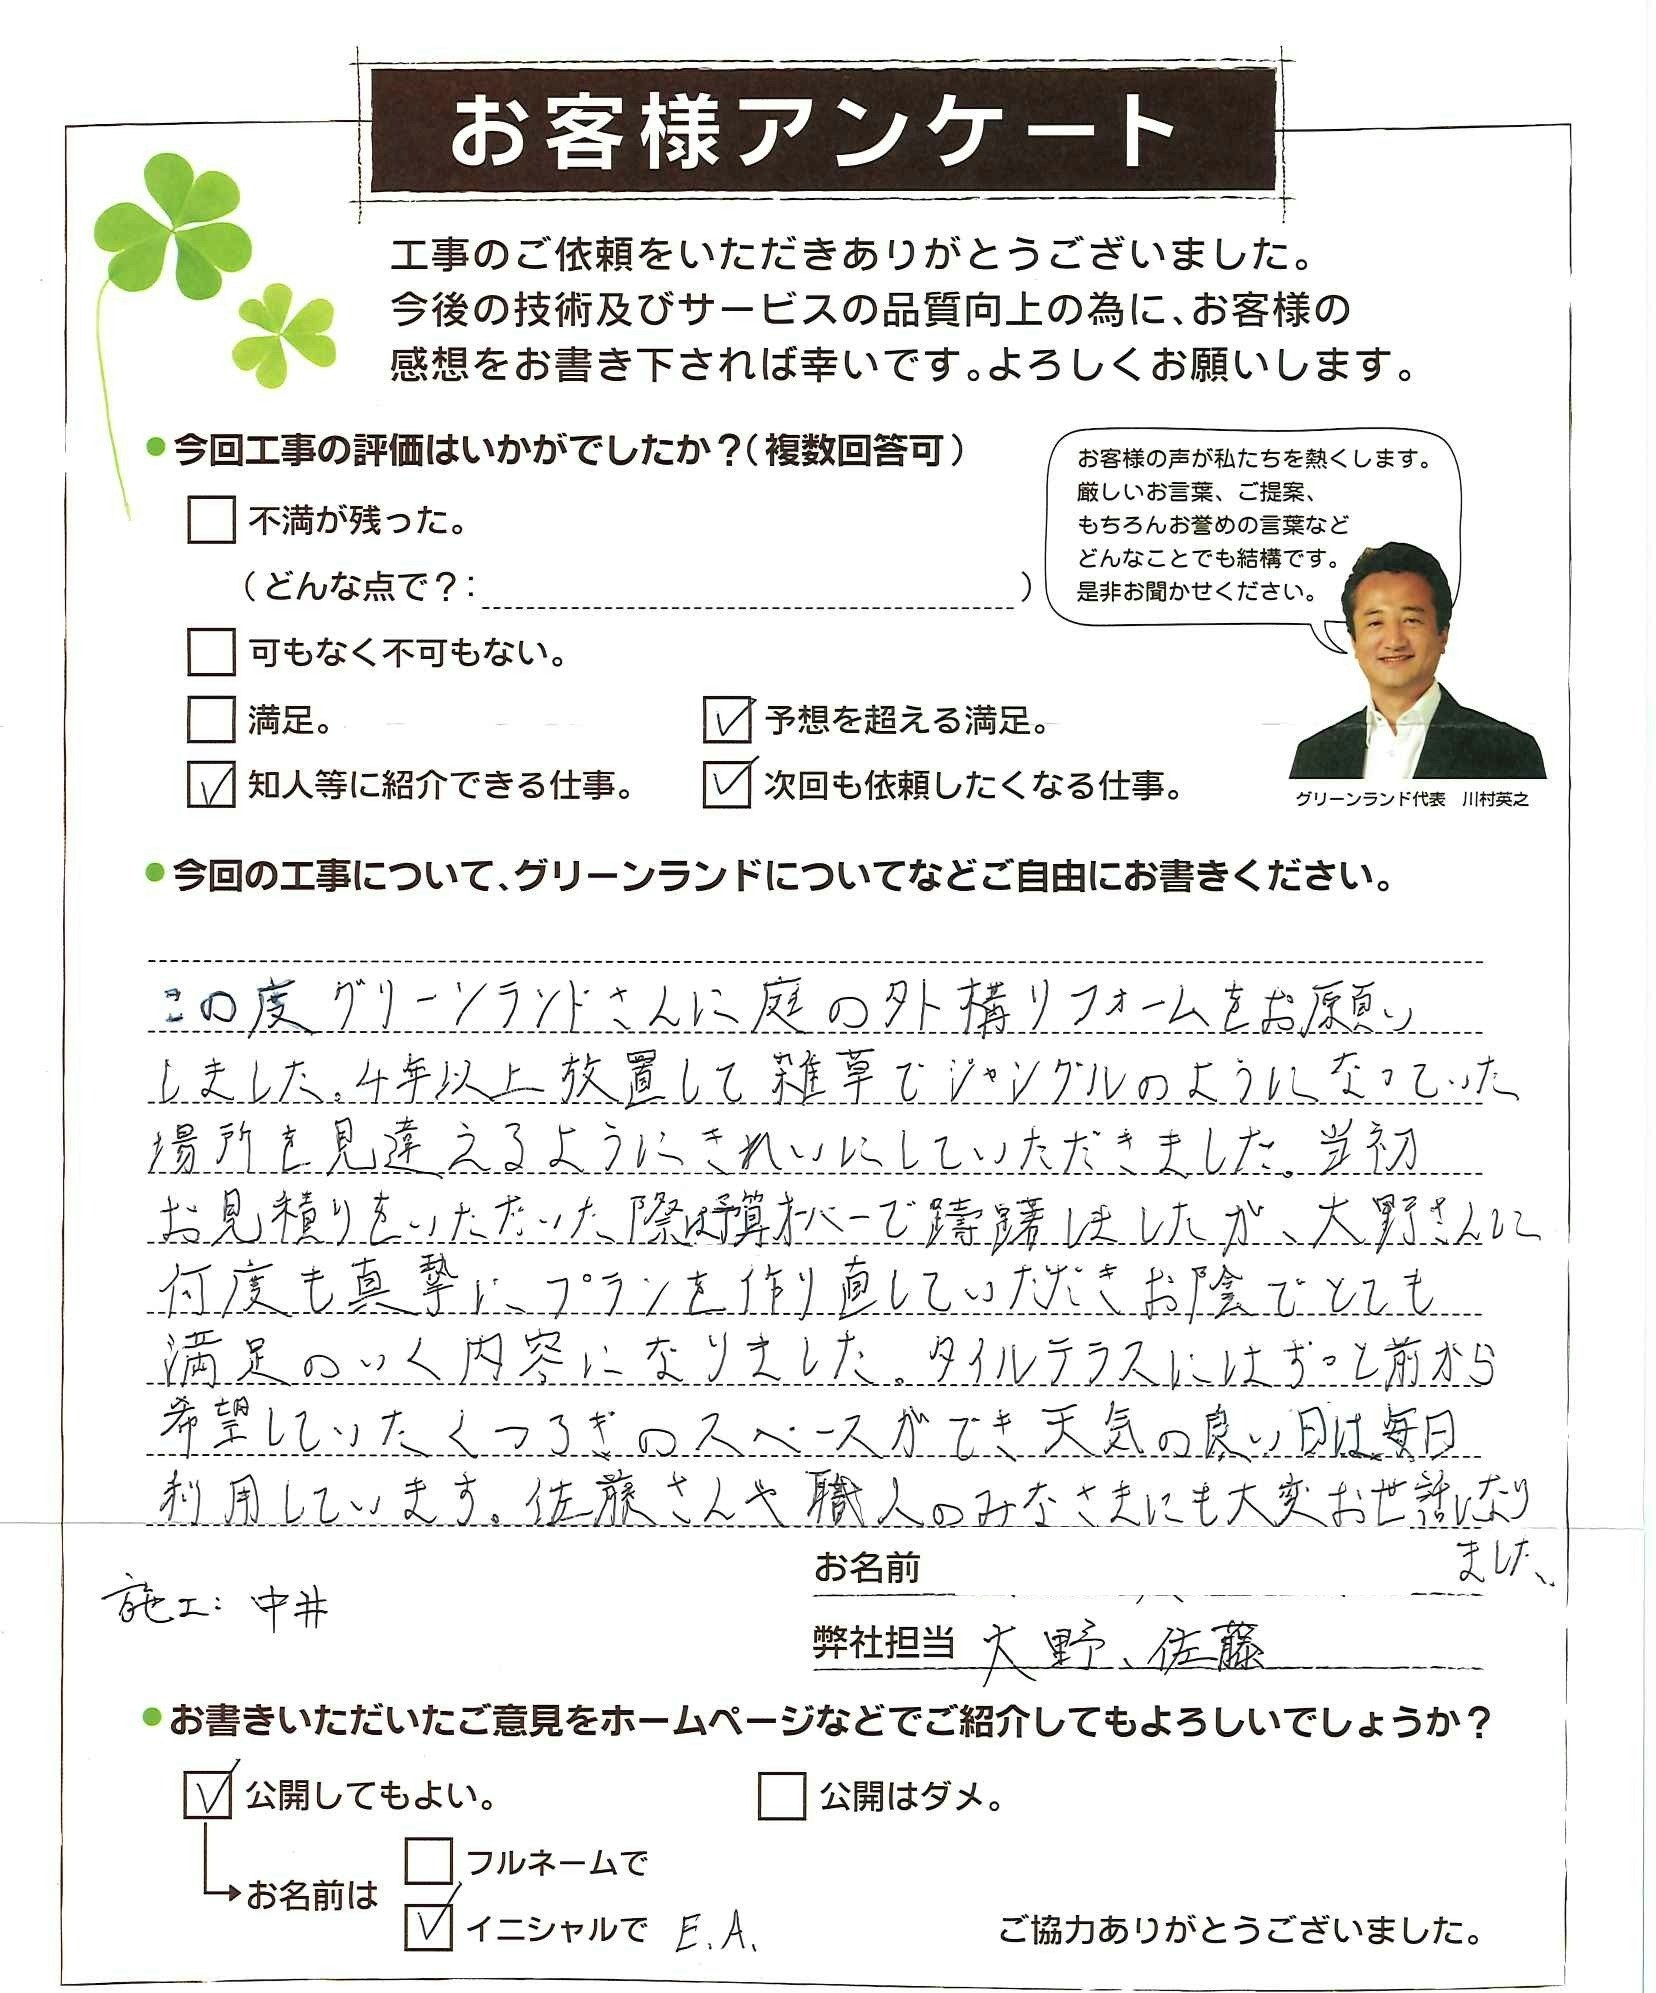 お客様アンケート
工事のご依頼をいただきありがとうございました。
今後の技術及びサービスの品質向上の為に、お客様の
感想をお書き下されば幸いです。よろしくお願いします。
●今回工事の評価はいかがでしたか？(複数回答可)
不満が残った。
(どんな点で？: )
可もなく不可もない。
満足。
予想を超える満足。
知人等に紹介できる仕事。
次回も依頼したくなる仕事。
お客様の声が私たちを熱くします。
厳しいお言葉、ご提案、
もちろんお誉めの言葉など
どんなことでも結構です。
是非お聞かせください。
グリーンランド代表 川村英之
●今回の工事について、グリーンランドについてなどご自由にお書きください。
この度グリーンランドさんに庭の外構リフォームをお願い
しました。4年以上放置して雑草でジャングルのようになっていた
場所を見違えるようにきれいにしていただきました。当初
お見積りをいただいた際は予算オーバーで躊躇しましたが、大野さんに
何度も真摯に、プランを作り直していただきお陰でとても
満足のいく内容になりました。タイルテラスにはずっと前から
希望していたくつろぎのスペースができ天気の良い日は毎日
利用しています。佐藤さんや職人のみなさまにも大変お世話になり
ました。
お名前
施工: 中井
弊社担当 大野、佐藤
●お書きいただいたご意見をホームページなどでご紹介してもよろしいでしょうか？
公開してもよい。
公開はダメ。
お名前は
フルネームで
イニシャルで E.A.
ご協力ありがとうございました。